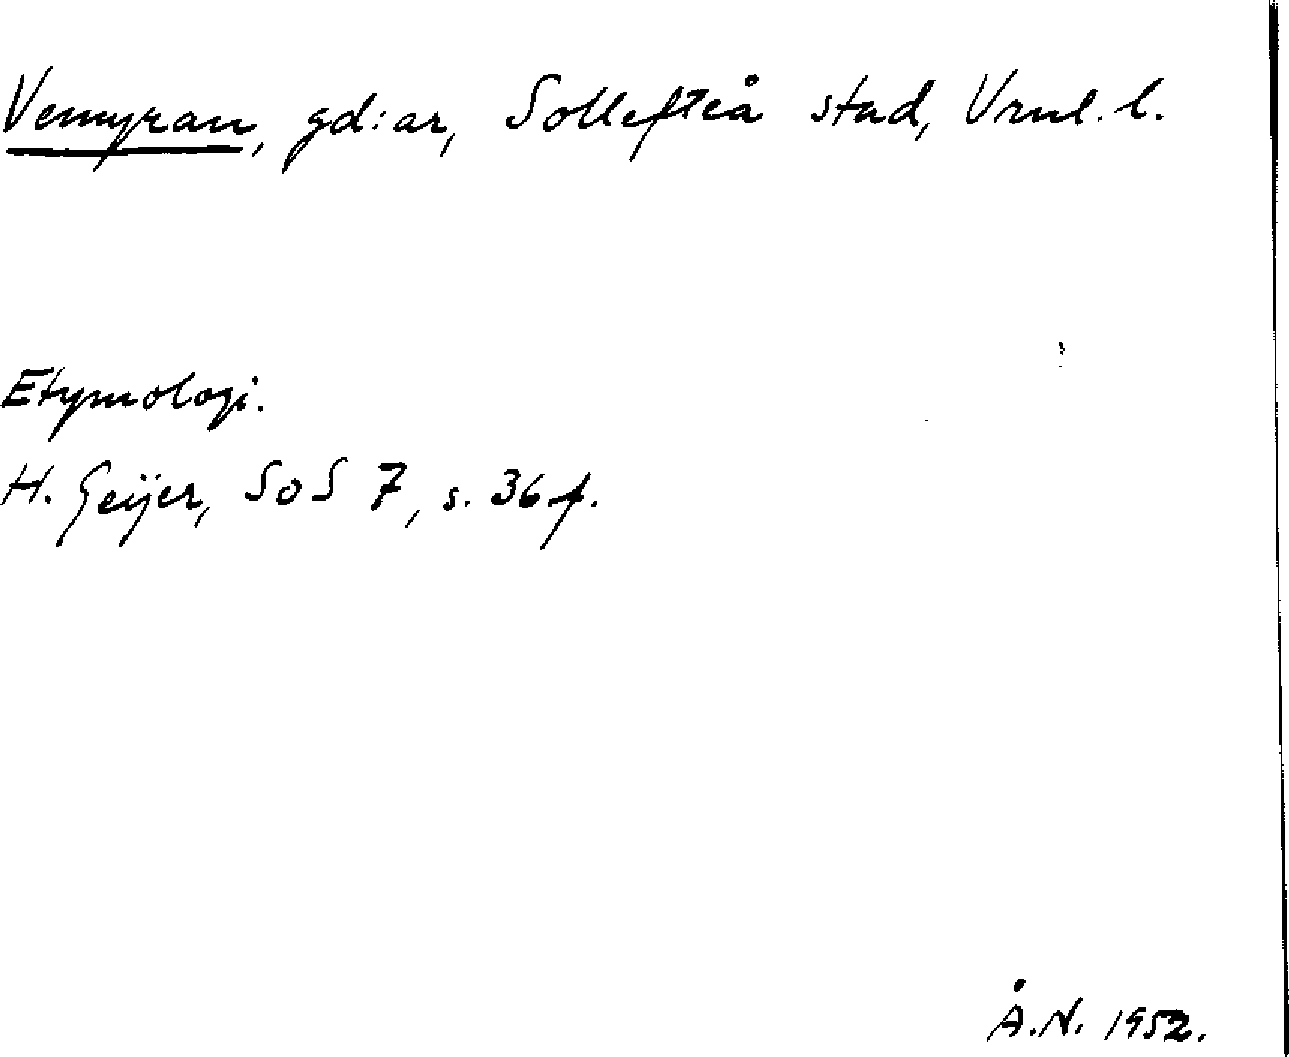 Vemyran, gd:ar, Sollefteå stad, Vrnl. l.
Etymologi.
H. Geijer, SoS 7, s. 36 f.
Å.N. 1952.